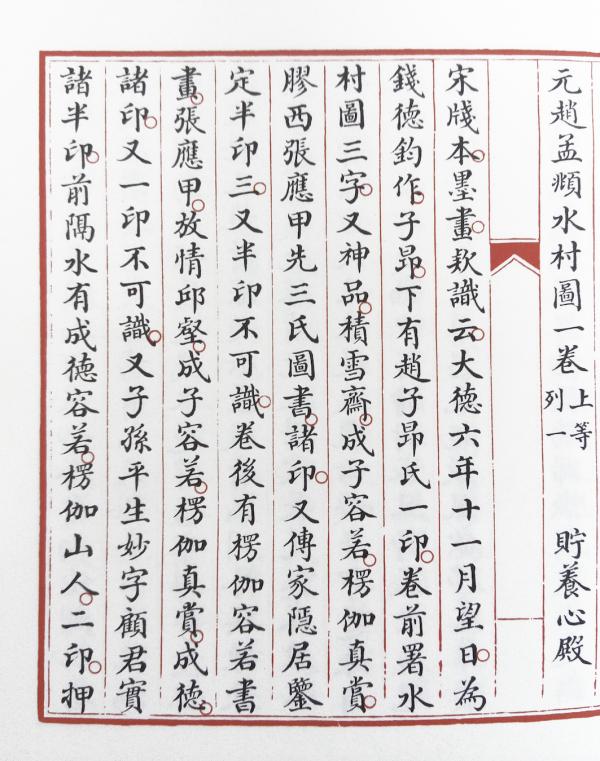 元趙孟頫水村圖一卷 上等 列一 貯養心殿
宋牋本墨畫欵識云大德六年十一月望日為
錢德鈞作子昂下有趙子昂氏一印卷前署水
村圖三字又神品積雪齋成子容若楞伽真賞
膠西張應甲先三氏圖書諸印又傳家隱居鑒
定半印三又半印不可識卷後有楞伽容若書
畫張應甲放情邱壑成子容若楞伽真賞成德
諸印又一印不可識又子孫平生妙字顧君實
諸半印前隔水有成德容若楞伽山人二印押